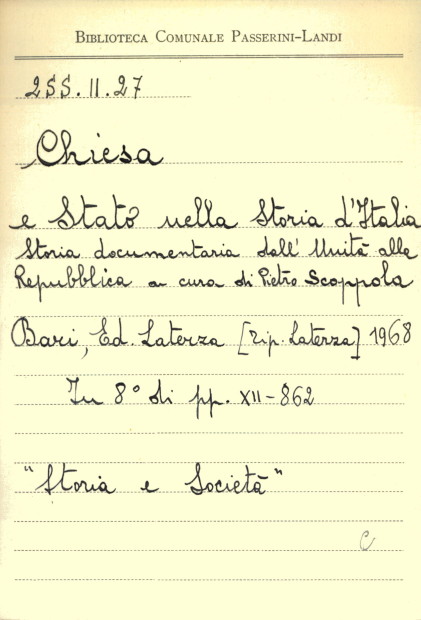 BIBLIOTECA COMUNALE PASSERINI-LANDI
2SS.II.27
Chiesa
e Stato nella Storia d'Italia
Storia documentaria dall'Unità alla
Repubblica a cura di Pietro Scoppola
Bari, Ed. Laterza [tip. Laterza] 1968
In 8° di pp. XII-862
"Storia e Società"
C